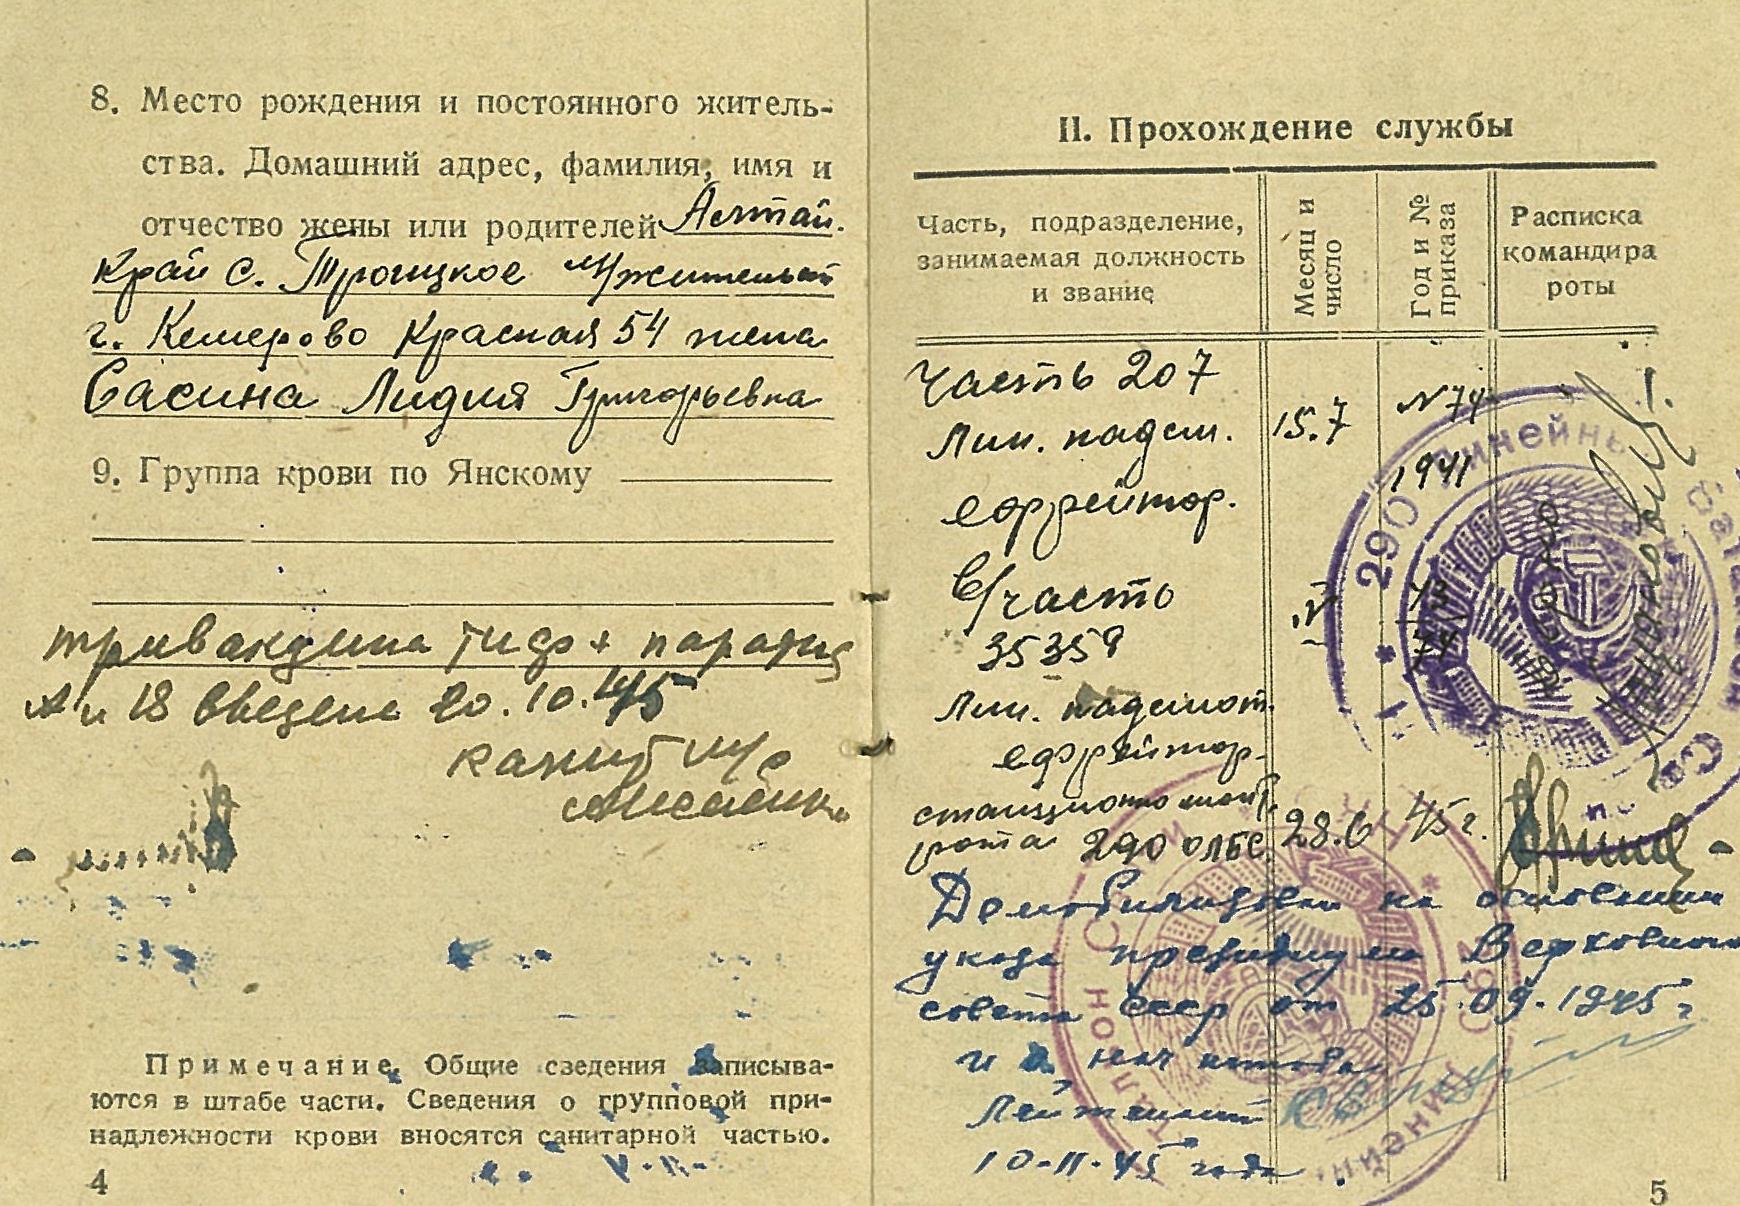 8. Место рождения и постоянного житель-
ства. Домашний адрес, фамилия, имя и
отчество жены или родителей Алтай.
край с. Троицкое М/жительст
г. Кемерово Красная 54 жена
Сасина Лидия Григорьевна
9. Группа крови по Янскому
тривакцина тиф + паратиф
А и В введена 20.10.45
капит м/с
Примечание. Общие сведения записыва-
ются в штабе части. Сведения о групповой при-
надлежности крови вносятся санитарной частью.
4
II. Прохождение службы
Часть, подразделение,
занимаемая должность
и звание
Месяц и
число
Год и №
приказа
Расписка
командира
роты
Часть 207
Лин. надсм. 15.7 №74
1941
ефрейтор.
В/часть
35359
Лин. надсмот.
ефрейтор.
станционно
рота 290 ОЛБС. 28.6 45 г.
Демобилизован на основании
указа президиума Верховного
совета СССР от 25.09.1945 г
и нач штаба
Лейтенант
10-11-45 года
5
290 Линейный батальон Связи
Линейный батальон Связи